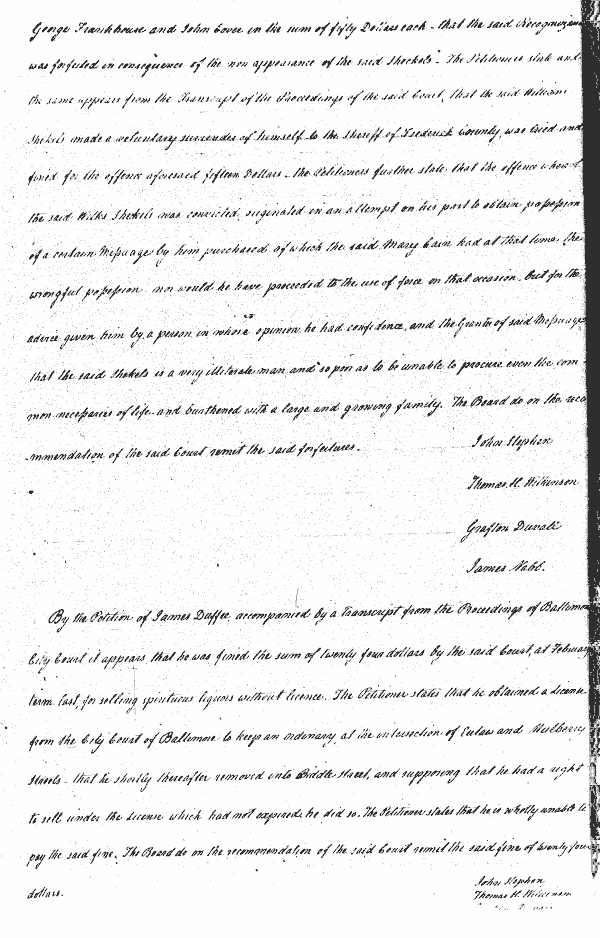 George Frankhouse and John Cover in the sum of fifty Dollars each - that the said Recognizance
was forfeited in consequence of the non appearance of the said Shekels - The Petitioners state and
the same appears from the Transcript of the Proceedings of the said Court, that the said William
Shekels made a voluntary surrender of himself to the Sheriff of Frederick County, was tried and
fined for the offence aforesaid fifteen Dollars - the Petitioners further state that the offence whereof
the said Willm. Shekels was convicted, originated in an attempt on his part to obtain possession
of a certain Messuage by him purchased of which the said Mary Cain had at that time the
wrongful possession nor would he have proceeded to the use of force on that occasion, but for the
advice given him by a person in whose opinion he had confidence, and the Grantor of said Messuage
that the said Shekels is a very illiterate man and so poor as to be unable to procure even the com-
mon necessaries of life and burthened with a large and growing family. The Board do on the reco
mmendation of the said Court remit the said forfeitures.
John Stephen
Thomas H. Wilkinson
Grafton Duvall
James Nabb.
By the Petition of James Duffee, accompanied by a Transcript from the Proceedings of Baltimore
City Court it appears that he was fined the sum of twenty four dollars by the said Court, at February
term last, for selling spirituous liquors without licence. The Petitioner states that he obtained a license
from the City Court of Baltimore to keep an ordinary, at the intersection of Eutaw and Mulberry
Streets - that he shortly thereafter removed into Biddle Street, and supposing that he had a right
to sell under the License which had not expired he did so. The Petitioner states that he is wholly unable to
pay the said fine. The Board do on the recommendation of the said Court remit the said fine of twenty four
dollars.
John Stephen
Thomas H. Wilkinson